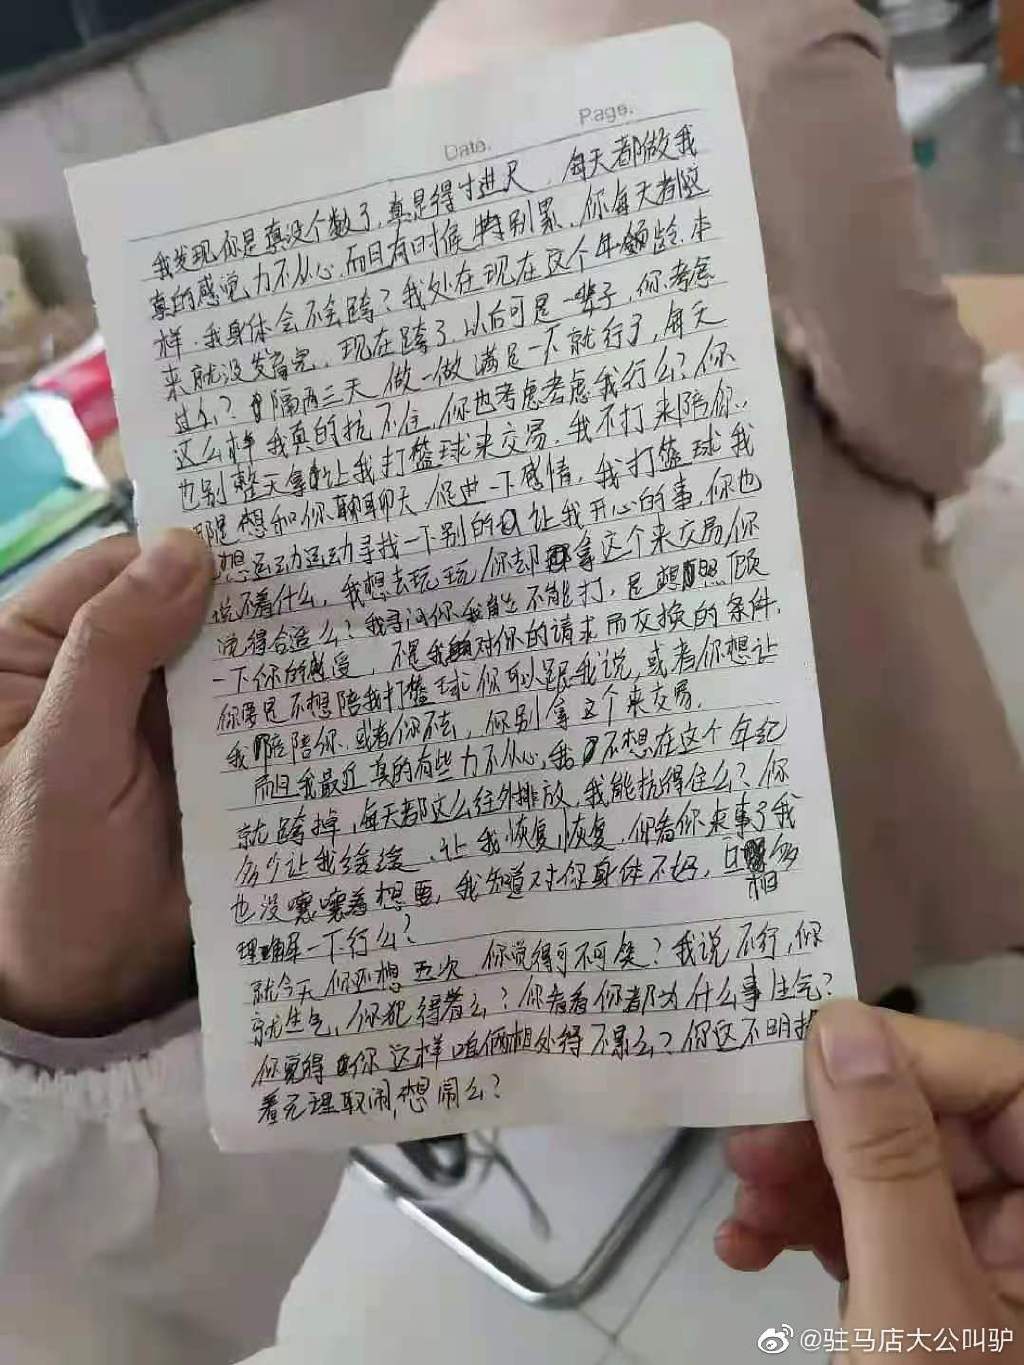 Date.
Page.
我发现你是真没个数了,真是得寸进尺,每天都做我
真的感觉力不从心,而且有时候特别累,你每天都这
样,我身体会不会跨?我处在现在这个年龄本
来就没发育完,现在跨了,以后可是一辈子,你考虑
过么?隔两三天做一做满足一下就行了,每天
这么样我真的抗不住,你也考虑考虑我行么?你
也别整天拿让我打篮球来交易,我不打来陪你,
是想和你聊聊天,促进一下感情,我打篮球我
想运动运动寻找一下别的让我开心的事,你也
说不着什么,我想去玩玩你却拿这个来交易你
觉得合适么?我寻问你我能不能打,是想照顾
一下你的感受,不是我对你的请求而交换的条件,
你要是不想陪我打篮球你可以跟我说,或者你想让
我陪你,或者你不去,你别拿这个来交易,
而且我最近真的有些力不从心,我不想在这个年纪
就跨掉,每天都这么往外排放,我能抗得住么?你
多少让我缓缓,让我恢复恢复,你看你来事了我
也没嚷嚷着想要,我知道对你身体不好,互相
理解一下行么?
就今天你还想五次你觉得可不可笑?我说不行,你
就生气,你犯得着么?你看看你都为什么事生气?
你觉得你这样咱俩相处得不累么?你这不明摆
着无理取闹,想闹么?
@驻马店大公叫驴